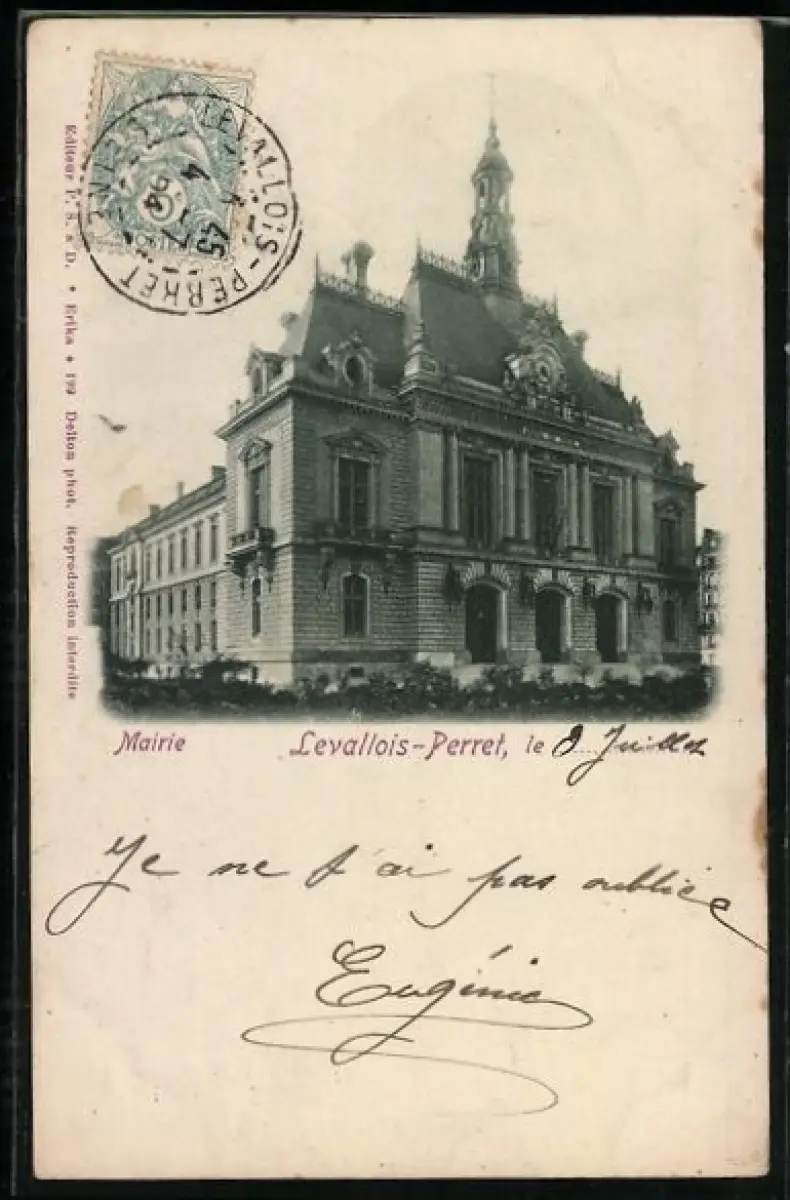 LEVALLOIS-PERRET
SEINE
5
Editeur P. S. à D. * Erika * 199 Delton phot. Reproduction interdite
Mairie
Levallois-Perret, le 8 Juillet
Je ne t'ai pas oubliée
Eugénie